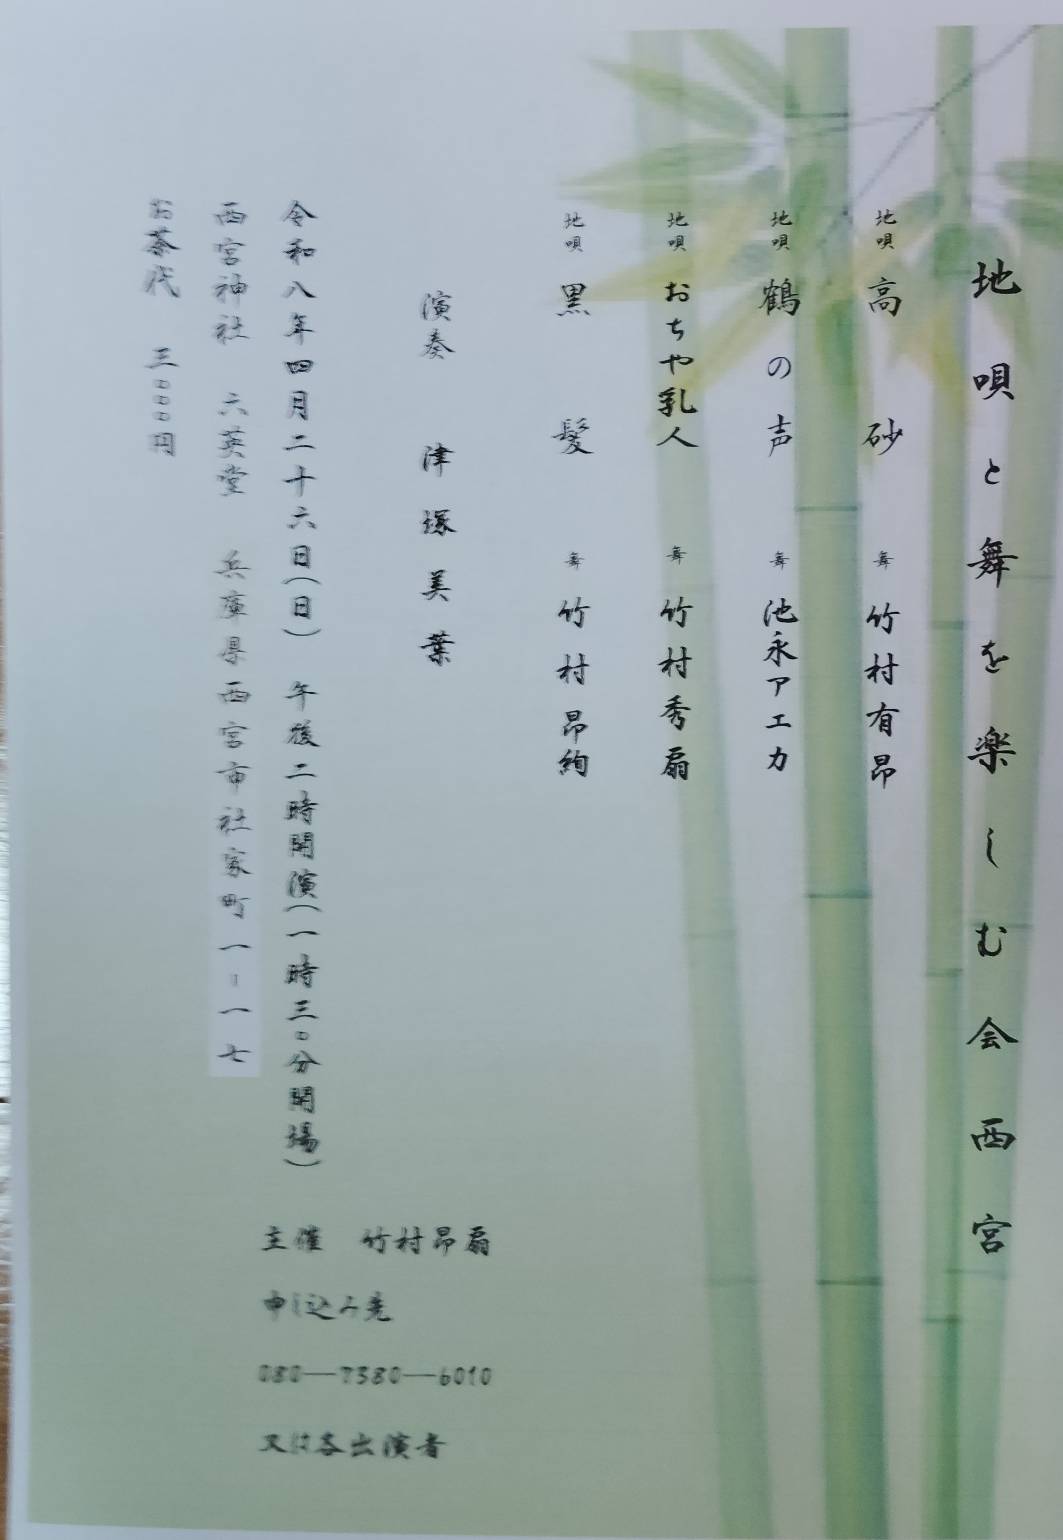 地唄と舞を楽しむ会西宮
地唄 高砂 舞 竹村有昂
地唄 鶴の声 舞 池永アエカ
地唄 おちや乳人 舞 竹村秀扇
地唄 黒髪 舞 竹村昂絢
演奏 津塚美葉
令和八年四月二十六日(日) 午後二時開演(一時三〇分開場)
西宮神社 六英堂 兵庫県西宮市社家町一-一七
お茶代 三〇〇〇円
主催 竹村昂扇
申し込み先
080―7380―6010
又は各出演者